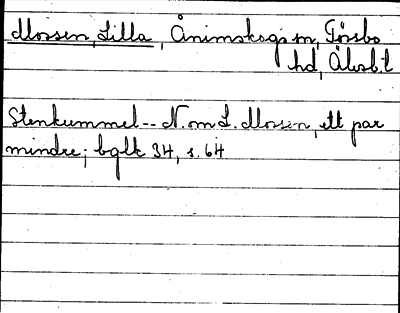 Mossen, Lilla, Ånimskogs sn, Tössbo
hd, Älvsb. l
Stenkummel -- N. om L. Mosen, ett par
mindre; bglk 34, s. 64